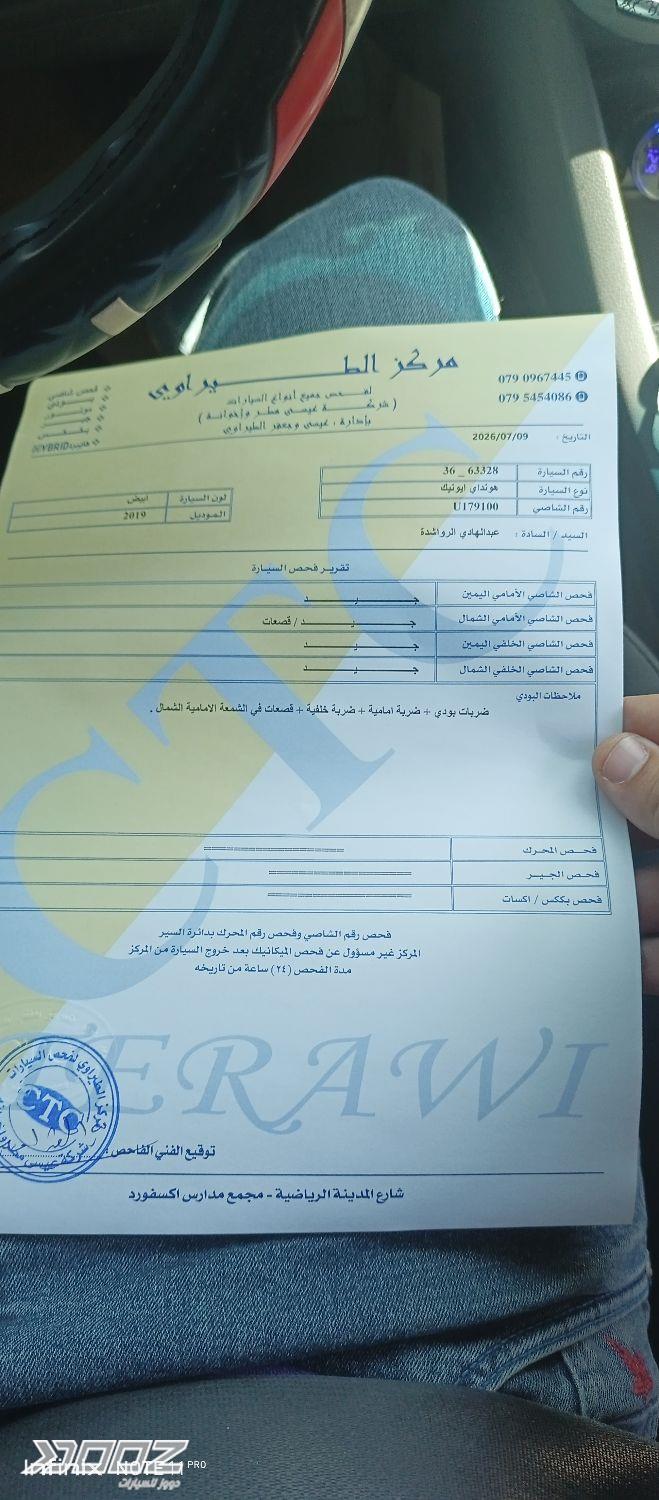 مركز الطيراوي
لفحص جميع أنواع السيارات
( شركة عيسى مطر وإخوانه )
بإدارة : عيسى وجعفر الطيراوي
079 0967445
079 5454086
فحص شاصي
HYBRID
التاريخ : 2026/07/09
رقم السيارة 63328 _ 36
نوع السيارة هونداي ايونيك
رقم الشاصي U179100
لون السيارة ابيض
الموديل 2019
السيد / السادة : عبدالهادي الرواشدة
تقرير فحص السيارة
فحص الشاصي الأمامي اليمين جـــيـــد
فحص الشاصي الأمامي الشمال جـــيـــد / قصعات
فحص الشاصي الخلفي اليمين جـــيـــد
فحص الشاصي الخلفي الشمال جـــيـــد
ملاحظات البودي
ضربات بودي + ضربة امامية + ضربة خلفية + قصعات في الشمعة الامامية الشمال .
فحص المحرك ====================
فحص الجير ====================
فحص بككس / اكسات ====================
فحص رقم الشاصي وفحص رقم المحرك بدائرة السير
المركز غير مسؤول عن فحص الميكانيك بعد خروج السيارة من المركز
مدة الفحص (٢٤) ساعة من تاريخه
CTC
TERAWI
مركز الطيراوي لفحص السيارات
CTC
توقيع الفني الفاحص :
شارع المدينة الرياضية - مجمع مدارس اكسفورد
Infinix NOTE 11 PRO
دووز للسيارات